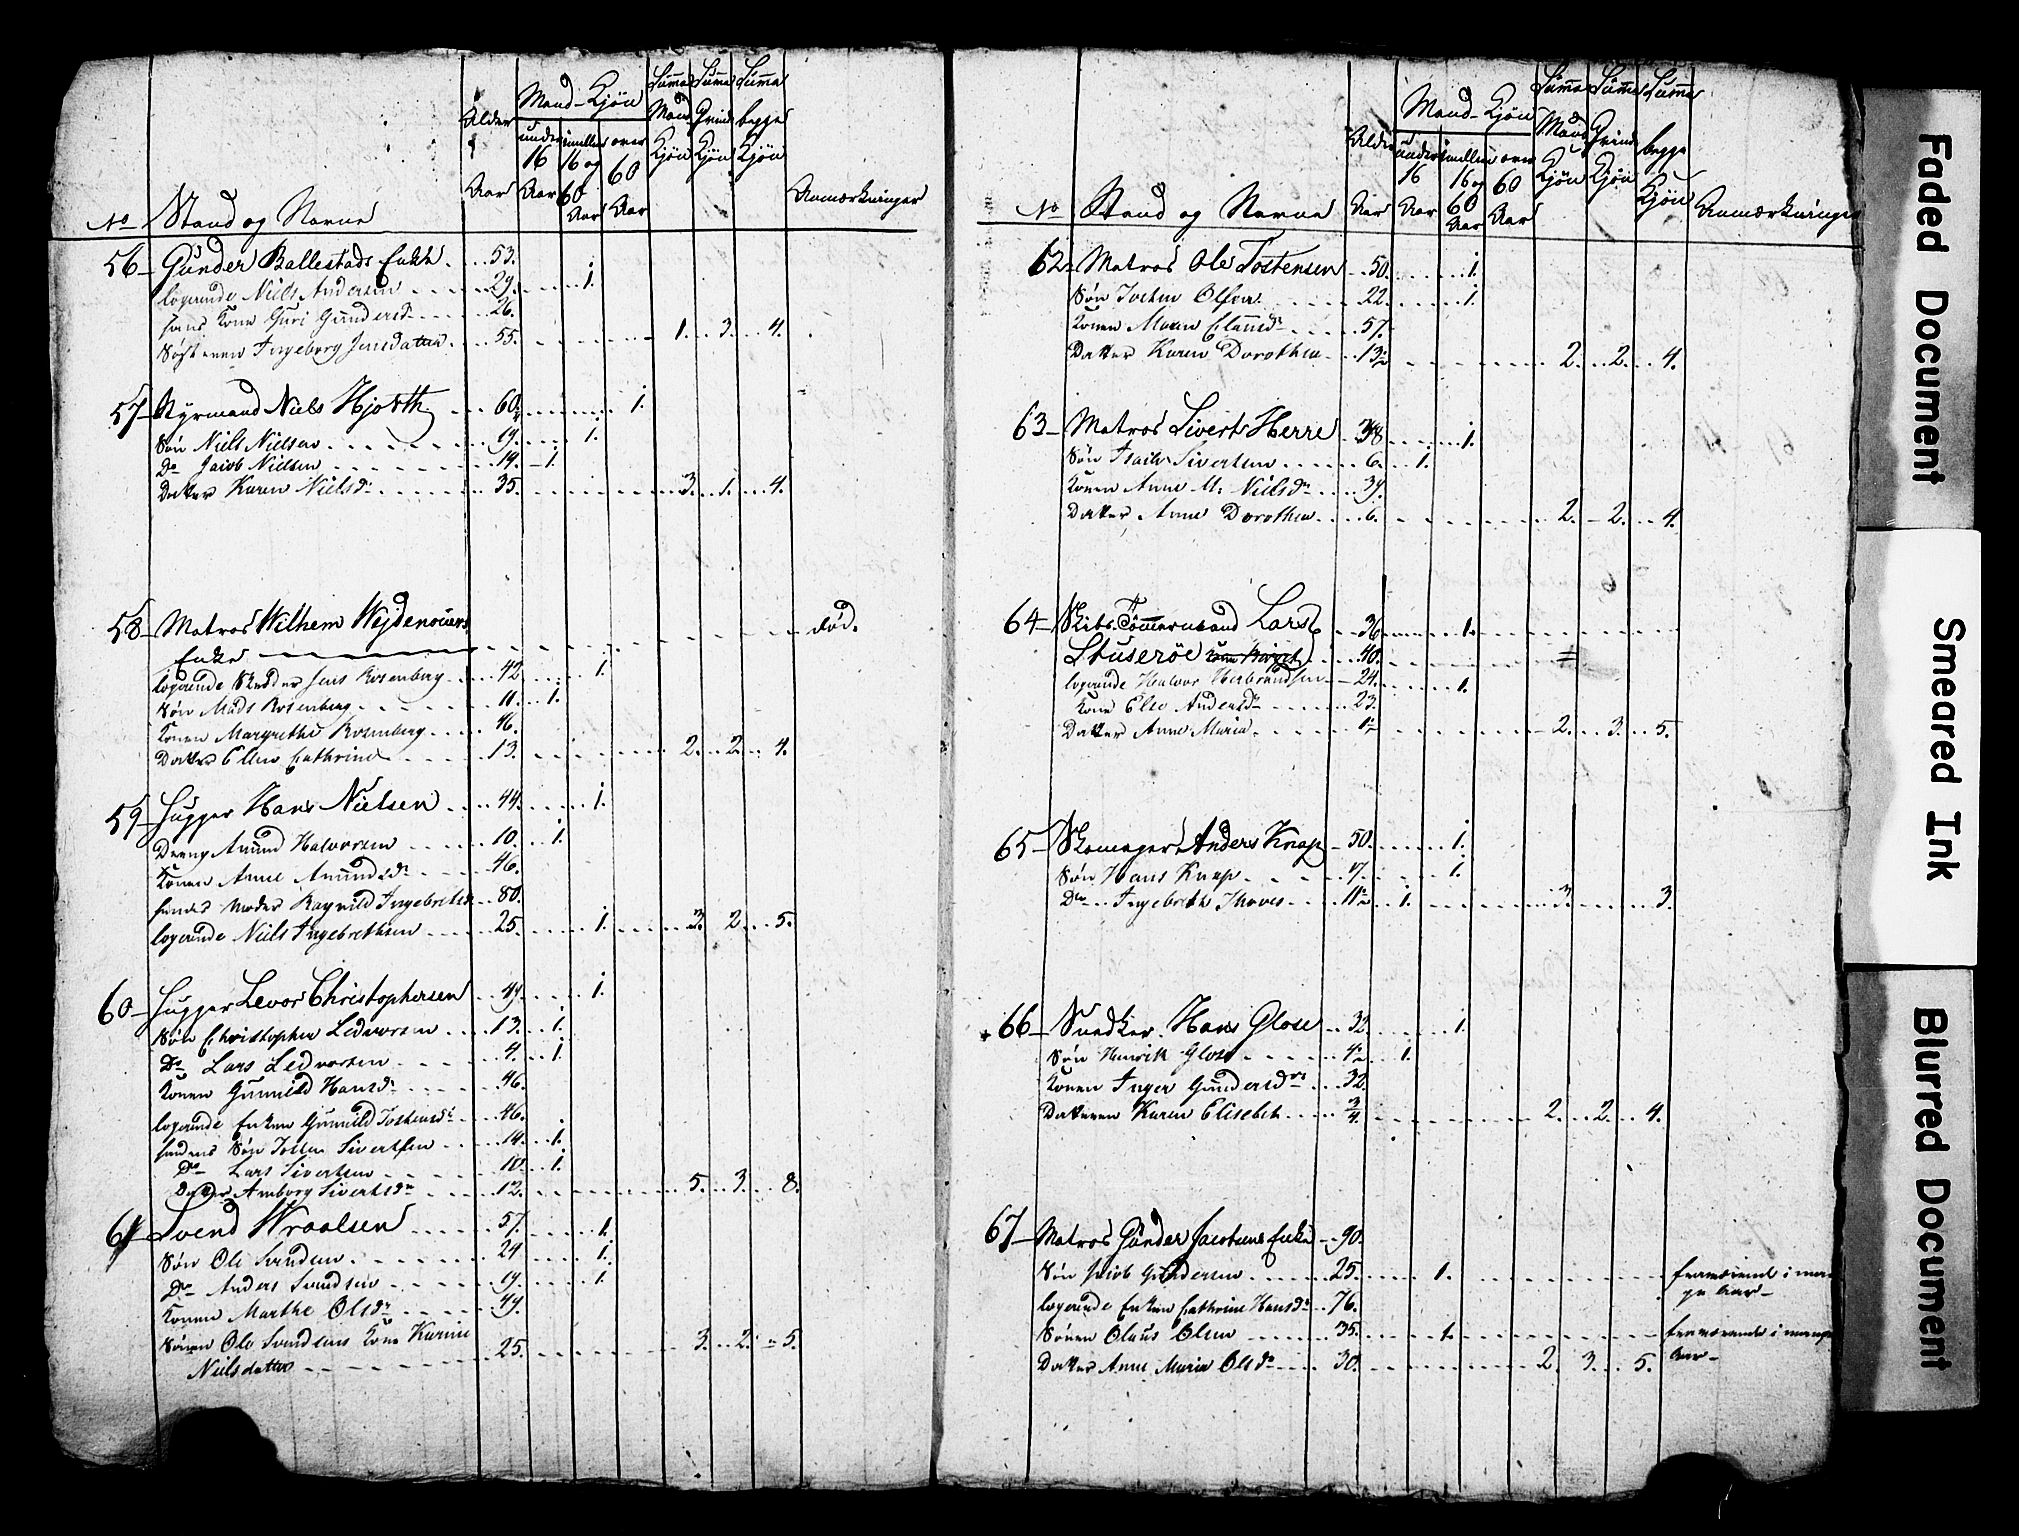 No Stand og Navne Alder Aar Mand-Kjön under 16 Aar imellem 16 og 60 Aar over 60 Aar Summa Mand Kjön Summa Qvinde Kjön Summa begge Kjön Anmærkninger
56 Gunder Ballestads Enke 53.
logerende Niels Andersen 29. 1.
hans Kone Guri Gundersd. 26.
Søsteren Ingeborg Jensdatter 55. 1. 3. 4.
57 Styrmand Niels Hjorth 60 1.
Søn Niels Nielsen 19. 1.
Do Jacob Nielsen 14. 1.
Datter Karen Nielsd. 35. 3. 1. 4.
58 Matros Wilhem Wejdenouers død.
Enke
logerende Skredder Jens Rosenberg 42 1.
Søn Mads Rosenberg 11. 1.
Konen Margrethe Rosenberg 46.
Datter Ellen Cathrine 13. 2. 2. 4.
59 Hugger Hans Nielsen 44. 1.
Dreng Amund Halvorsen 10. 1.
Konen Anne Amundsd. 46.
hendes Moder Ragnild Ingebretsd. 80.
logerende Niels Ingebrethsen 25. 1. 3. 2. 5.
60 Hugger Levor Christophersen 49. 1.
Søn Christopher Ledvorsen 13. 1.
Do Lars Ledvorsen 4. 1.
Konen Gunnild Hansd. 46.
logerende Enken Gunnild Tostensd. 46.
hendes Søn Tosten Sivertsen 14. 1.
Do Lars Sivertsen 10. 1.
Datter Amborg Sivertsd. 12. 5. 3. 8.
61 Svend Wraalsen 57. 1.
Søn Ole Svendsen 24 1.
Do Anders Svendsen 19. 1.
Konen Marthe Olsd. 49.
Sønen Ole Svendsens Kone Karine
Nielsdatter 25. 3. 2. 5.
No Stand og Navne Alder Aar Mand-Kjön under 16 Aar imellem 16 og 60 Aar over 60 Aar Summa Mand Kjön Summa Qvinde Kjön Summa begge Kjön Anmærkninger
62 Matros Ole Tostensen 50. 1.
Søn Tosten Olsen 22. 1.
Konen Maren Clausd. 57.
Datter Karen Dorothea 13 2. 2. 4.
63 Matros Siverts Herre 38 1.
Søn Isach Sivertsen 6. 1.
Konen Anne M. Nielsd. 39.
Datter Anne Dorothea 6. 2. 2. 4.
64 Skibs Tömmermand Lars 36 1.
Stuserøe Kone Birgit 40.
logerende Halvor Herbrandsen 24. 1.
Kone Else Andersd. 23.
Datter Anne Maria 1 2. 3. 5.
65 Skomager Anders Knap 50. 1.
Søn Hans Knap 17. 1.
Do Ingebreth 11 1. 3. 3.
66 Snedker Hans Glose 32 1.
Søn Henrik Glose 4 1.
Konen Inger Gundersd. 32.
Datteren Karen Elisebet 3/4 2. 2. 4.
67 Matros Gunder Jacobsens Enke 90.
Søn Jacob Gundersen 25. 1. fraværende i man-
ge Aar
logerende Enken Cathrine Hansd. 76.
Sønen Olaus Olsen 35. 1. fraværende i mange
Aar
Datter Anne Maria Olsd. 30. 2. 3. 5.
Faded Document
Smeared Ink
Blurred Document